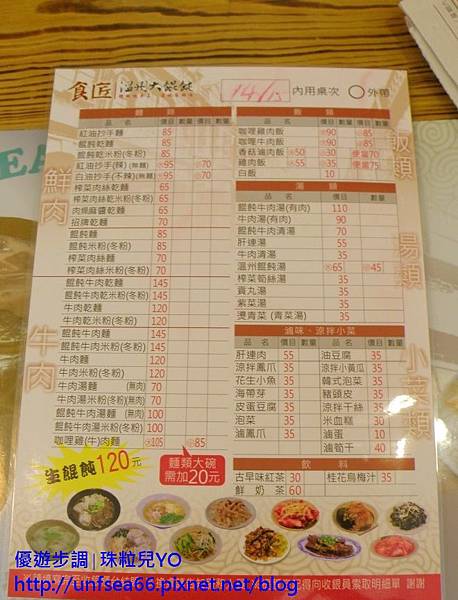 食匠 溫州大餛飩
14/15 內用桌次 ○外帶
麵類
品名 價目 數量 價目 數量
紅油抄手麵 85
餛飩乾麵 85
餛飩乾米粉(冬粉) 85
紅油抄手(辣)(無麵) 95 70
白油抄手(不辣)(無麵) 95 70
榨菜肉絲乾麵 70
榨菜肉絲乾米粉(冬粉) 70
肉燥麻醬乾麵 70
招牌乾麵 70
餛飩麵 85
餛飩米粉(冬粉) 85
榨菜肉絲麵 70
榨菜肉絲米粉(冬粉) 70
餛飩牛肉乾麵 145
餛飩牛肉乾米粉(冬粉) 145
牛肉乾麵 120
牛肉乾米粉(冬粉) 120
餛飩牛肉麵 145
餛飩牛肉米粉(冬粉) 145
牛肉麵 120
牛肉米粉(冬粉) 120
牛肉湯麵 (無肉) 70
牛肉湯米粉(冬粉)(無肉) 70
餛飩牛肉湯麵 (無肉) 100
餛飩牛肉湯米粉(冬粉) 100
咖哩雞(牛)肉麵 大105 小85
鮮肉
牛肉
飯類
品名 價目 數量 價目 數量
咖哩雞肉飯 大90 小85
咖哩牛肉飯 大90 小85
香菇滷肉飯 大50 小30 便當70
雞肉飯 大55 小35 便當75
白飯 10
飯類
湯類
品名 價目 數量 價目 數量
餛飩牛肉湯(有肉) 110
牛肉湯(有肉) 90
餛飩牛肉清湯 70
肝連湯 55
牛肉清湯 35
溫州餛飩湯 大65 小45
榨菜筍絲湯 35
貢丸湯 35
紫菜湯 35
燙青菜 (青菜湯) 35
湯類
滷味、涼拌小菜
品名 價目 數量 品名 價目 數量
肝連肉 55 油豆腐 35
涼拌鳳爪 35 涼拌小黃瓜 35
花生小魚 35 韓式泡菜 35
海帶芽 35 豬頭皮 35
皮蛋豆腐 35 涼拌干絲 35
泡菜 35 米血糕 30
滷鳳爪 35 滷蛋 10
滷筍干 40
小菜類
飲料
古早味紅茶 30 桂花烏梅汁 35
鮮奶茶 60
生餛飩120元
麵類大碗
需加20元
得向收銀員索取明細單 謝謝
優遊步調|珠粒兒YO
http://unfsea66.pixnet.net/blog